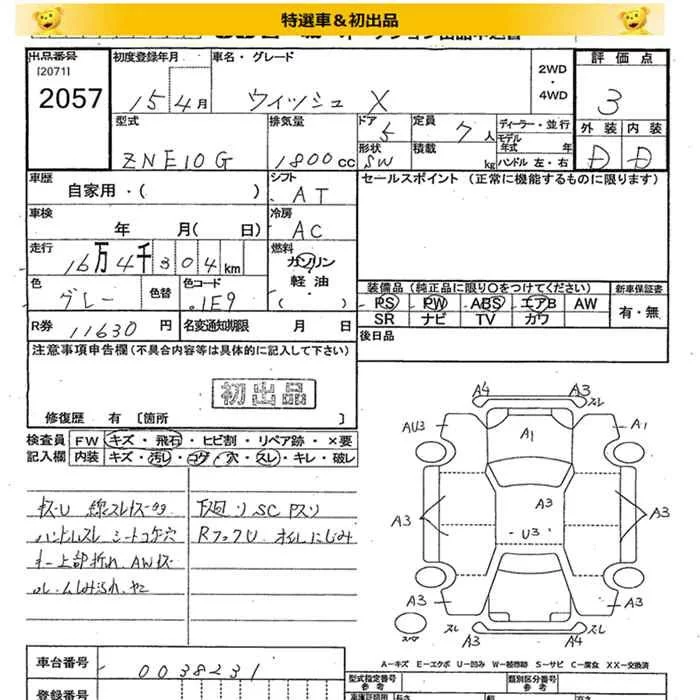 特選車＆初出品
出品番号
[2071]
2057
初度登録年月
15 4月
車名・グレード
ウィッシュ X
2WD
・
4WD
評価点
3
外装 内装
D D
型式
ZNE10G
排気量
1800cc
ドア 5
形状 SW
定員 7人
積載 kg
ディーラー・並行
モデル年式 年
ハンドル 左・右
車歴
自家用・( )
シフト
AT
セールスポイント（正常に機能するものに限ります）
車検
年 月( 日)
冷房
AC
走行
16万4千304km
燃料
ガソリン
軽油
・( )
色
グレー
色替
色コード
1E9
装備品（純正品に限り○をつけてください）
PS PW ABS エアB AW
SR ナビ TV カワ
新車保証書
有・無
R券 11630円
名変通知期限 月 日
後日品
注意事項申告欄(不具合内容等は具体的に記入して下さい)
初出品
修復歴 有 [箇所 ]
検査員
記入欄
FW キズ・飛石・ヒビ割・リペア跡・×要
内装 キズ・汚し・コゲ・穴・スレ・キレ・破レ
ハンドルスレ シートコゲ穴
キー上部折れ、AWキズ
下回り SC Pスリ
RフックU オイルにじみ
A4 A3 スレ
AU3 A1 A1
A3 A3 A3
U3
A3 A3
スペア スレ A3 A4 スレ
A－キズ E－エクボ U－凹み W－補修跡 S－サビ C－腐食 XX－交換済
車台番号
0038231
登録番号
型式指定番号
参考
類別区分番号
参考
長さ 幅 高さ